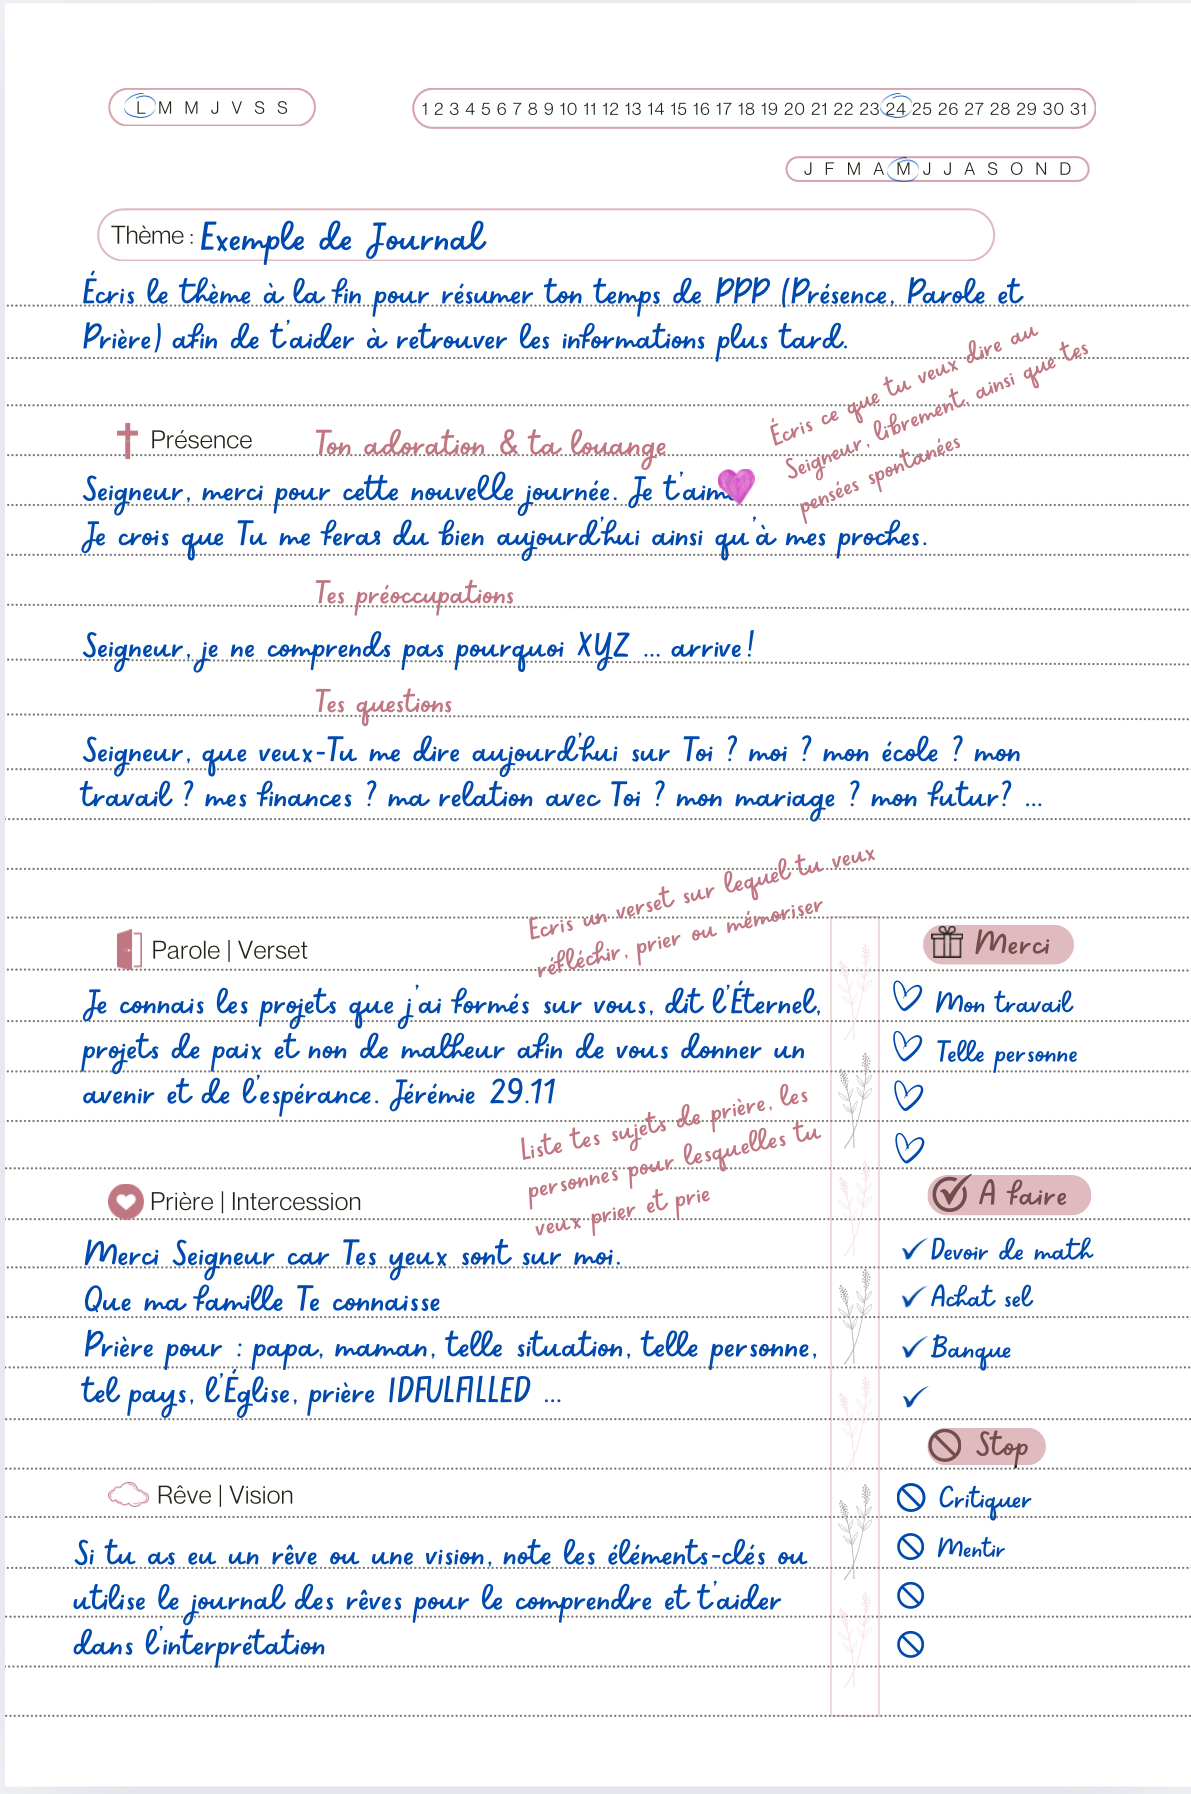 L M M J V S S
1 2 3 4 5 6 7 8 9 10 11 12 13 14 15 16 17 18 19 20 21 22 23 24 25 26 27 28 29 30 31
J F M A M J J A S O N D
Thème : Exemple de Journal
Écris le thème à la fin pour résumer ton temps de PPP (Présence, Parole et
Prière) afin de t'aider à retrouver les informations plus tard.
Écris ce que tu veux dire au
Seigneur, librement, ainsi que tes
pensées spontanées
Présence
Ton adoration & ta louange
Seigneur, merci pour cette nouvelle journée. Je t'aim
Je crois que Tu me feras du bien aujourd'hui ainsi qu'à mes proches.
Tes préoccupations
Seigneur, je ne comprends pas pourquoi XYZ ... arrive!
Tes questions
Seigneur, que veux-Tu me dire aujourd'hui sur Toi ? moi ? mon école ? mon
travail ? mes finances ? ma relation avec Toi ? mon mariage ? mon futur? ...
Ecris un verset sur lequel tu veux
réfléchir, prier ou mémoriser
Parole | Verset
Je connais les projets que j'ai formés sur vous, dit l'Éternel,
projets de paix et non de malheur afin de vous donner un
avenir et de l'espérance. Jérémie 29.11
Liste tes sujets de prière, les
personnes pour lesquelles tu
veux prier et prie
Prière | Intercession
Merci Seigneur car Tes yeux sont sur moi.
Que ma famille Te connaisse
Prière pour : papa, maman, telle situation, telle personne,
tel pays, l'Église, prière IDFULFILLED ...
Rêve | Vision
Si tu as eu un rêve ou une vision, note les éléments-clés ou
utilise le journal des rêves pour le comprendre et t'aider
dans l'interprétation
Merci
Mon travail
Telle personne
A faire
Devoir de math
Achat sel
Banque
Stop
Critiquer
Mentir